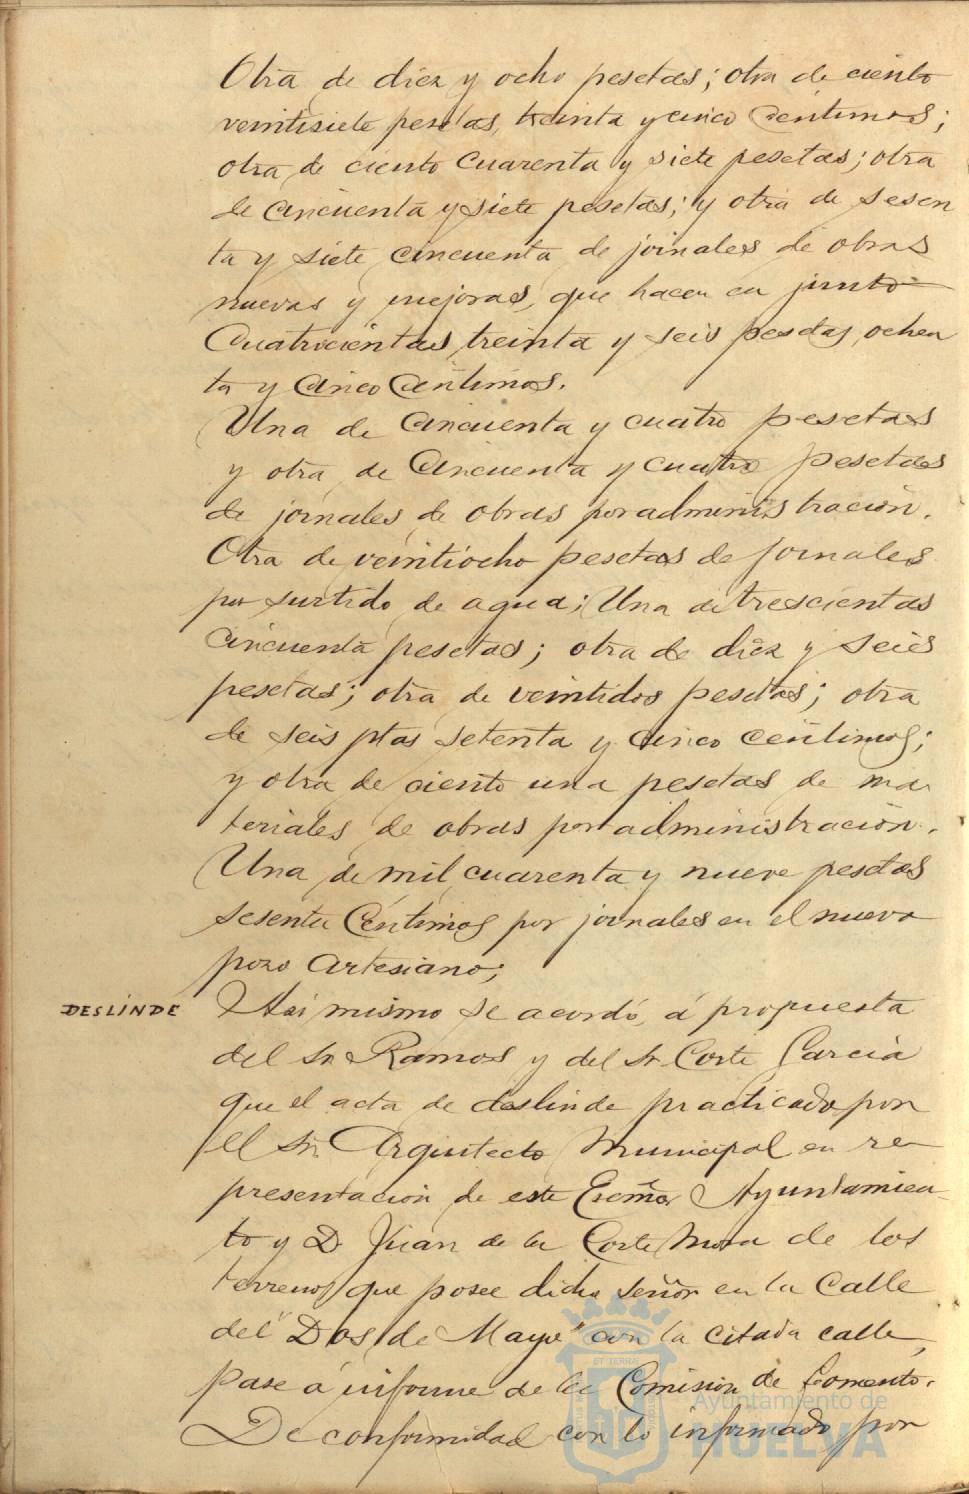 Otra de diez y ocho pesetas; otra de ciento
veintisiete pesetas, treinta y cinco Centimos;
otra de ciento Cuarenta y siete pesetas; otra
de cincuenta y siete pesetas; y otra de sesen
ta y siete cincuenta de jornales de obras
nuevas y mejoras, que hacen en junto
Cuatrocientas treinta y seis pesetas, ochen
ta y Cinco Centimos.
Una de Cincuenta y cuatro pesetas
y otra de Cincuenta y cuatro pesetas
de jornales de obras por administracion.
Otra de veintiocho pesetas de jornales
por surtido de agua; Una de trescientas
cincuenta pesetas; otra de diez y seis
pesetas; otra de veintidos pesetas; otra
de seis ptas setenta y cinco centimos;
y otra de ciento una pesetas de ma-
teriales de obras por administracion.
Una de mil cuarenta y nueve pesetas
sesenta Centimos por jornales en el nuevo
pozo artesiano;
DESLINDE Asi mismo se acordó, á propuesta
del Sr. Ramos y del Sr. Corte Garcia
que el acta de deslinde practicado por
el Sr. Arquitecto Municipal en re-
presentacion de este Excmo. Ayuntamien-
to y D. Juan de la Corte Mora de los
terrenos que posee dicho señor en la Calle
del "Dos de Mayo" con la citada calle,
pase á informe de la Comision de Fomento.
De conformidad con lo informado por
ET TERRAE
Ayuntamiento de
HUELVA